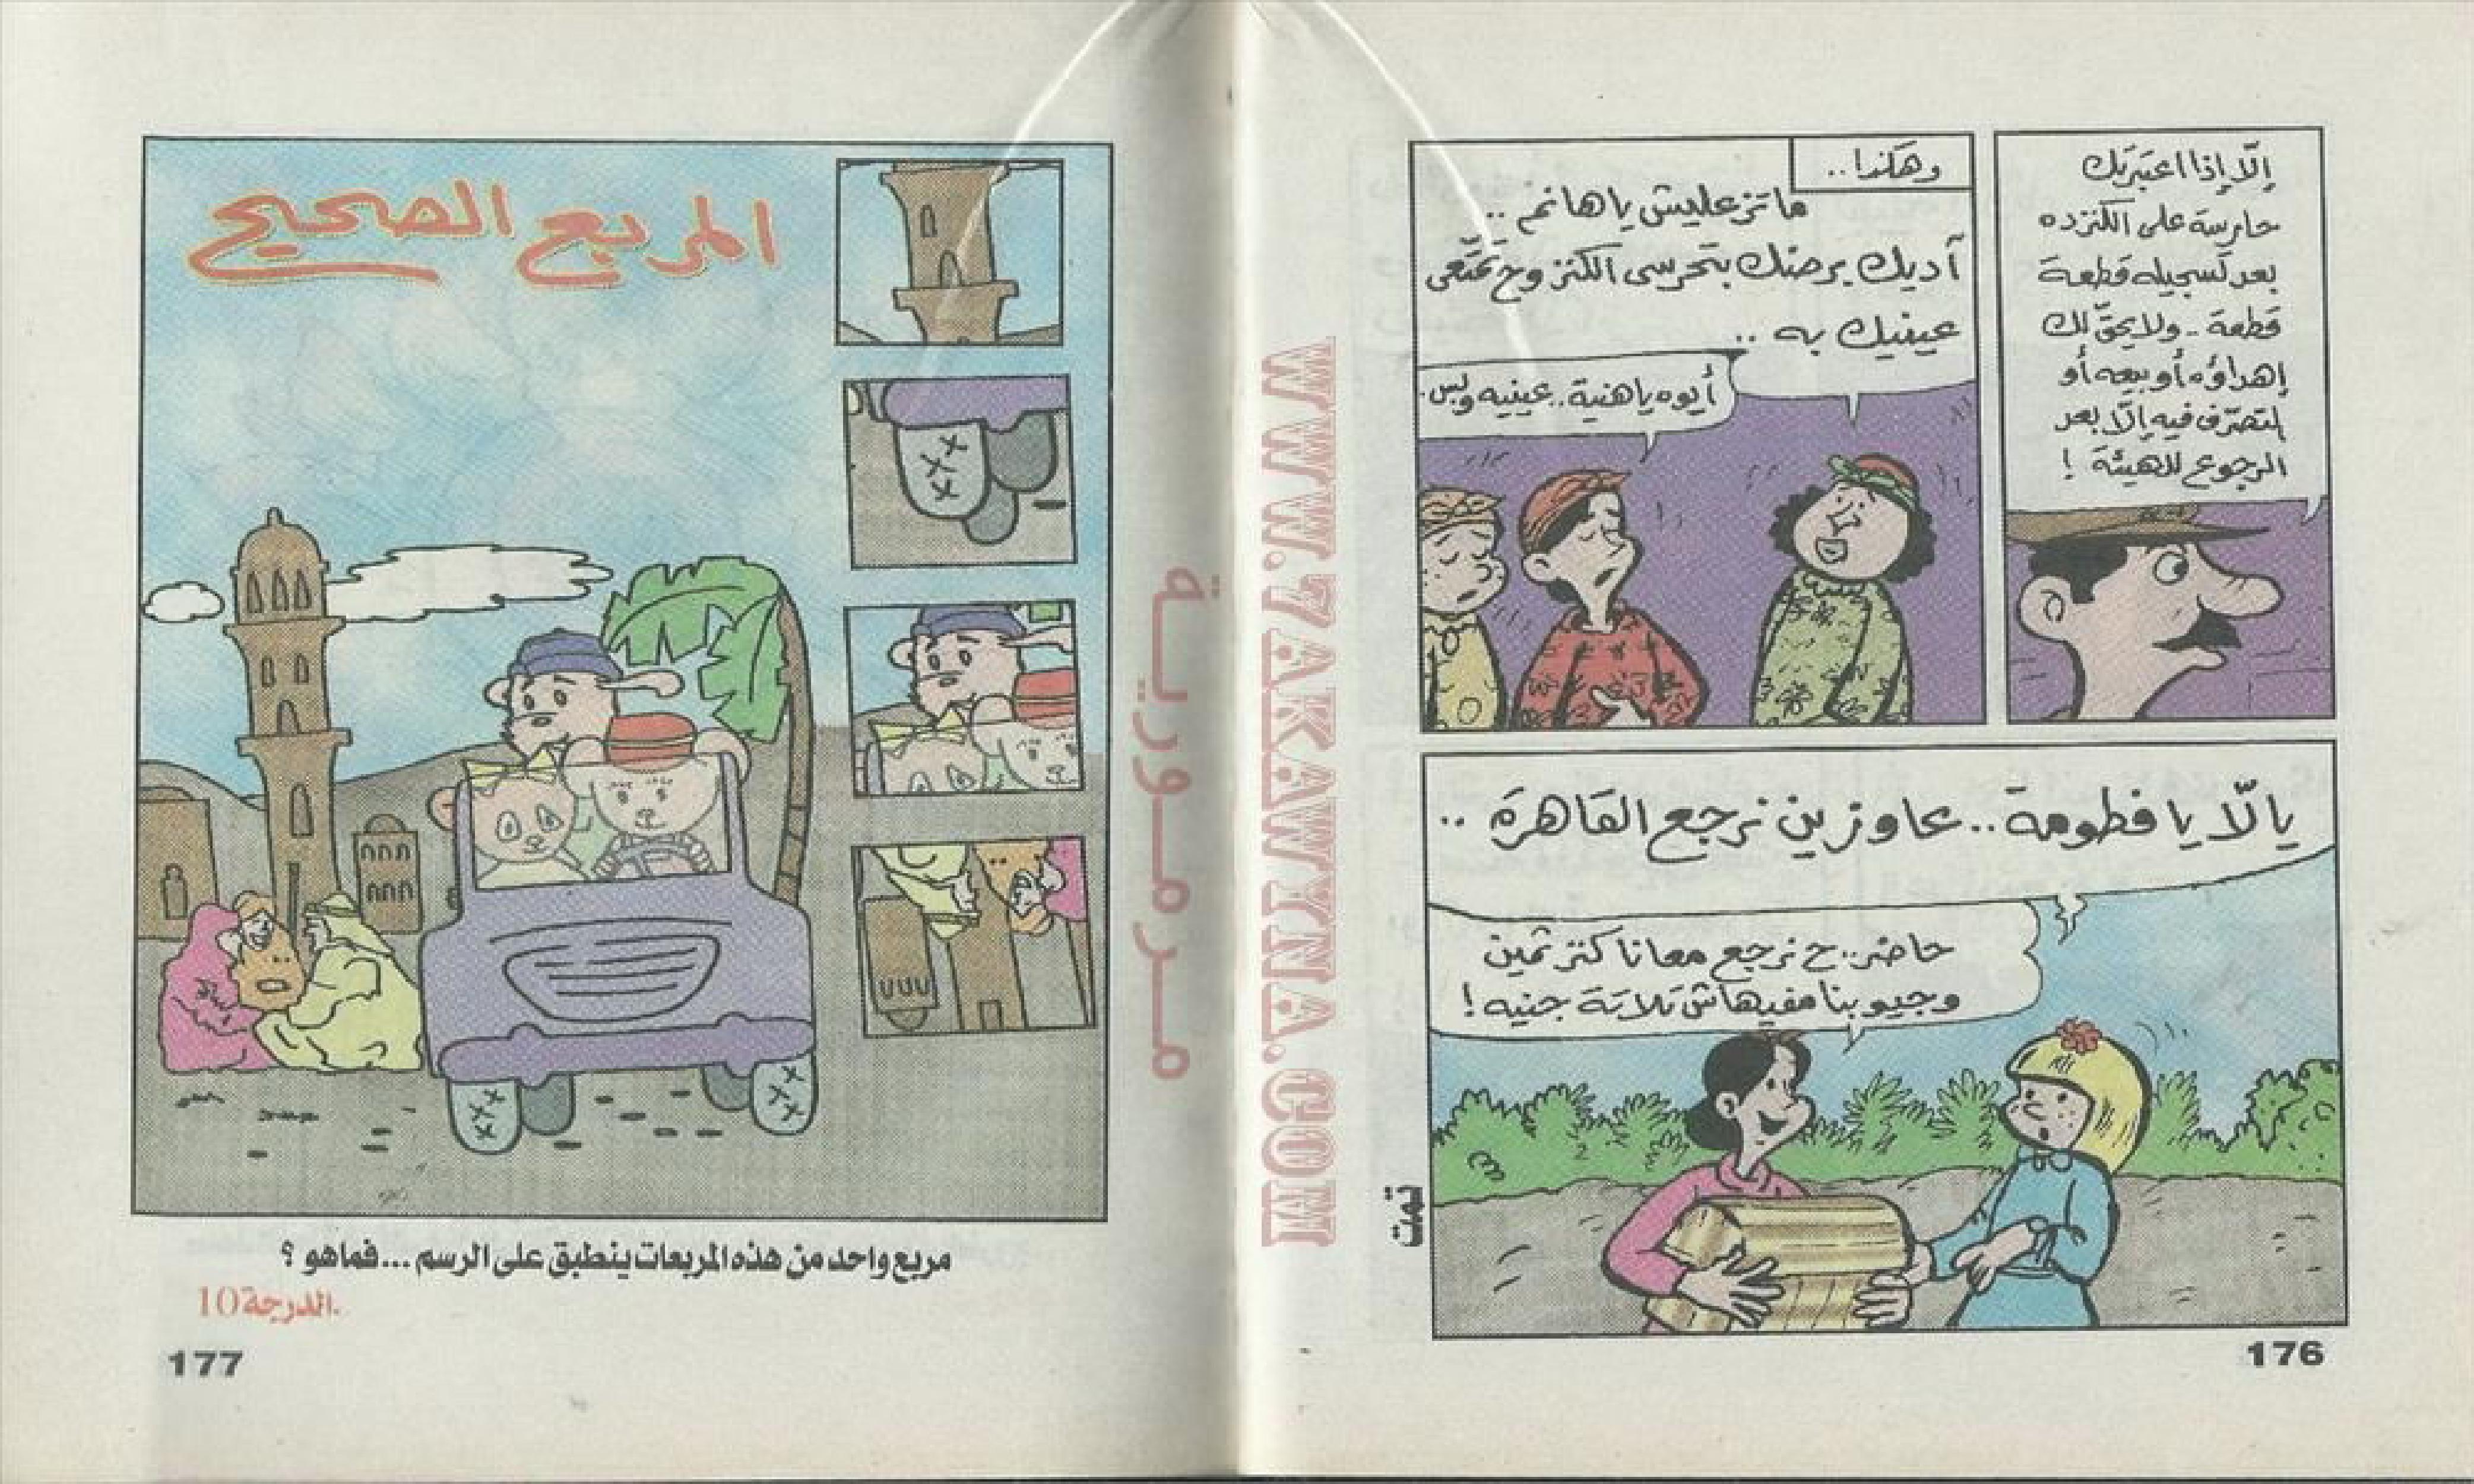 إلّا إذا اعتبرتك
حارسة على الكنز ده
بعد تسجيله قطعة
قطعة - ولا يحقّ لك
إهداؤه أو بيعه أو
التصرّف فيه إلّا بعد
الرجوع للهيئة !
وهكذا..
ما تزعليش يا هانم ..
آديك برضك بتحرسى الكنز وح تمتّعى
عينيك به ..
أيوه يا هنية.. عينيه وبس.
يا لّا يا فطومة.. عاوزين نرجع القاهرة ..
حاضر.. ح نرجع معانا كنز ثمين
وجيوبنا مفيهاش تلاتة جنيه !
تمت
176
WWW.7AKAWYNA.COM
مرمورية
المربع الصحيح
مربع واحد من هذه المربعات ينطبق على الرسم ... فما هو ؟
الدرجة 10.
177